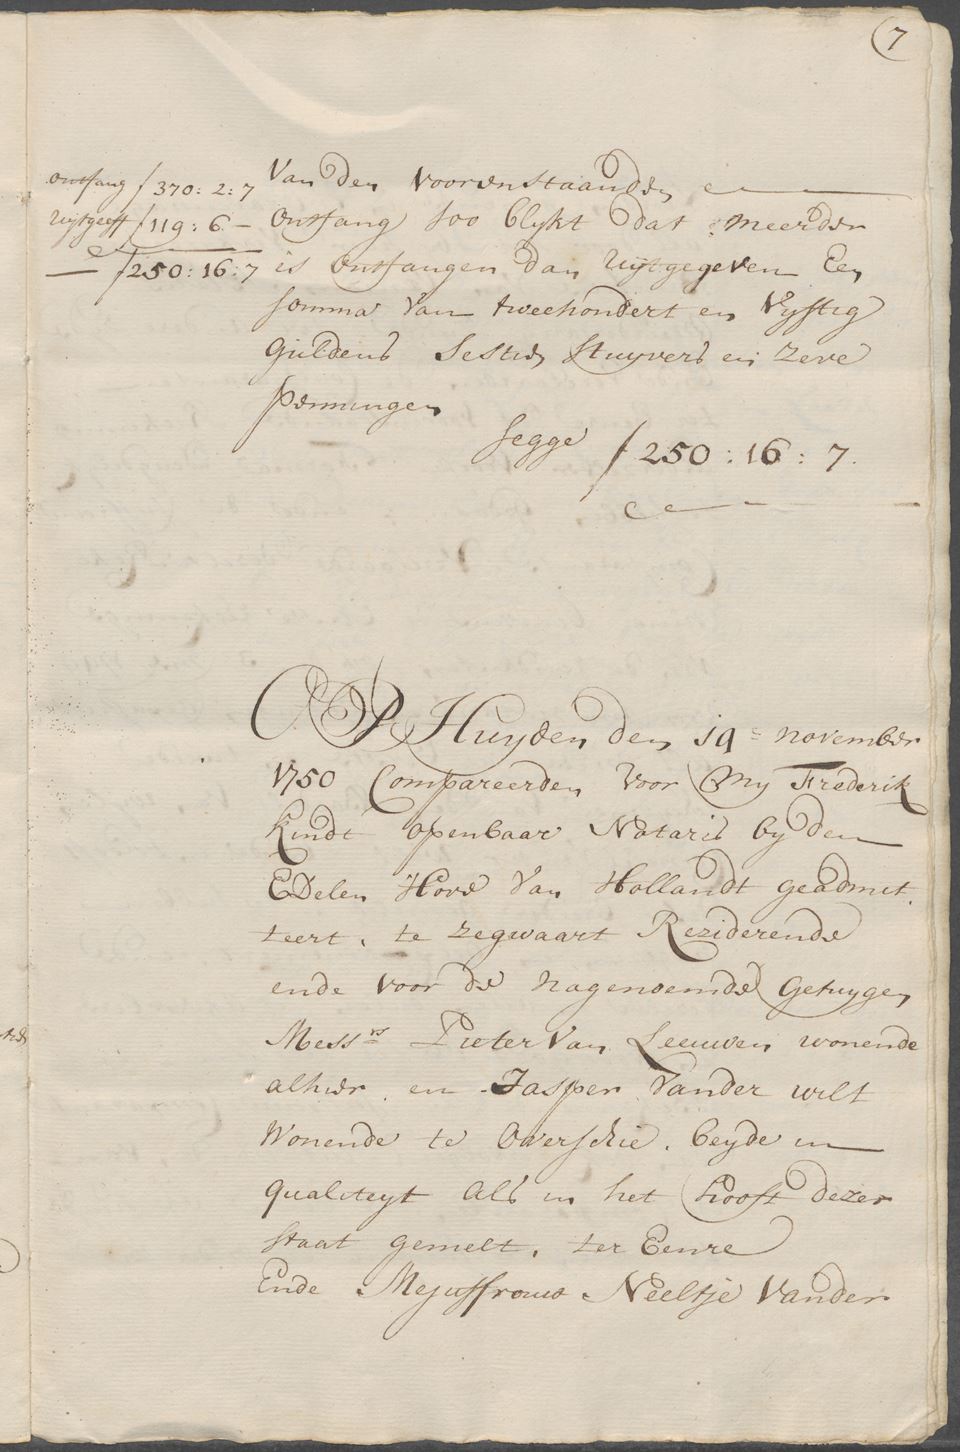 7
ontfang f 370: 2: 7
uijtgeeft f 119: 6 —
— f 250: 16: 7
van den voorenstaanden
ontfang soo blykt dat meerder
is ontfangen dan uijtgegeven Een
somma van tweehondert en vyftig
guldens sestien stuyvers en zeve
penningen
segge f 250: 16: 7.
OP Huyden den 19e november
1750 Compareerden voor my Frederik
Kindt openbaar Notaris by den
EDelen Hove van Hollandt geadmit
teert, te Zegwaart Reziderende
ende voor de nagenoemde Getuygen
Messrs Pieter van Leeuwen wonende
alhier en Jasper vander wilt
Wonende te Overschie, beyde in
qualiteyt als in het Hooft dezer
staat gemelt, ter Eenre
Ende Mejuffrouw Neeltje vander